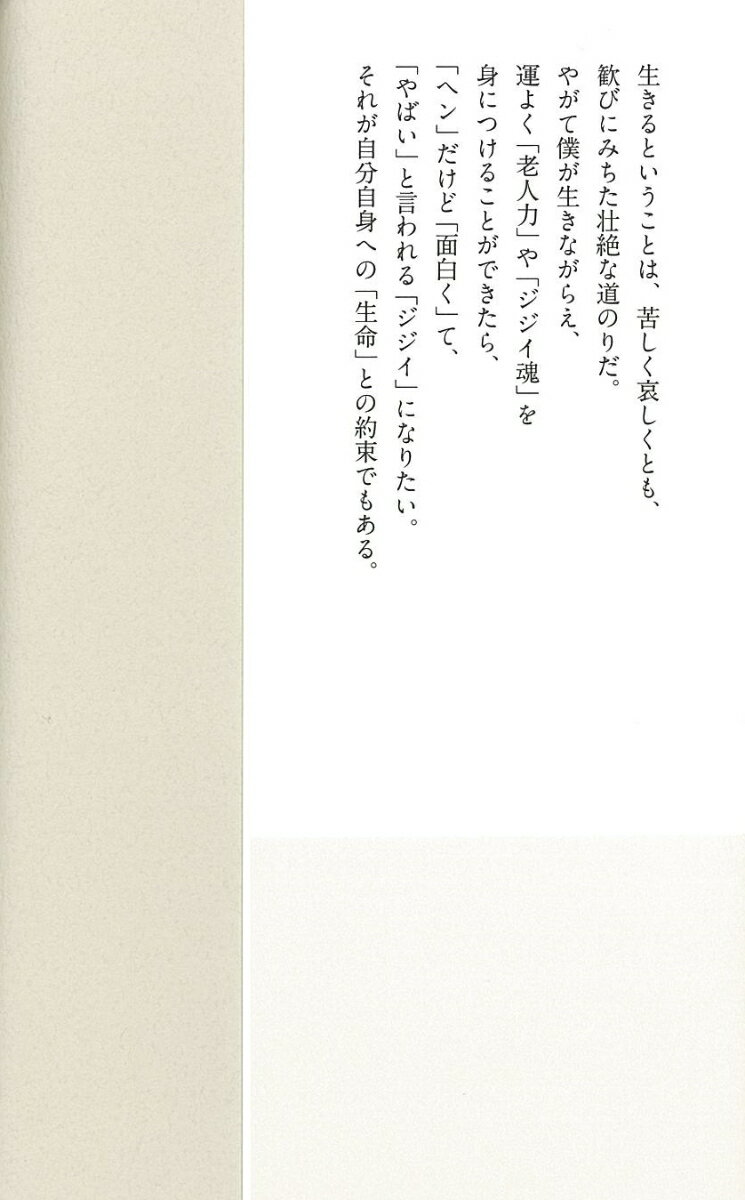 生きるということは、苦しく哀しくとも、
歓びにみちた壮絶な道のりだ。
やがて僕が生きながらえ、
運よく「老人力」や「ジジイ魂」を
身につけることができたら、
「ヘン」だけど「面白く」て、
「やばい」と言われる「ジジイ」になりたい。
それが自分自身への「生命」との約束でもある。